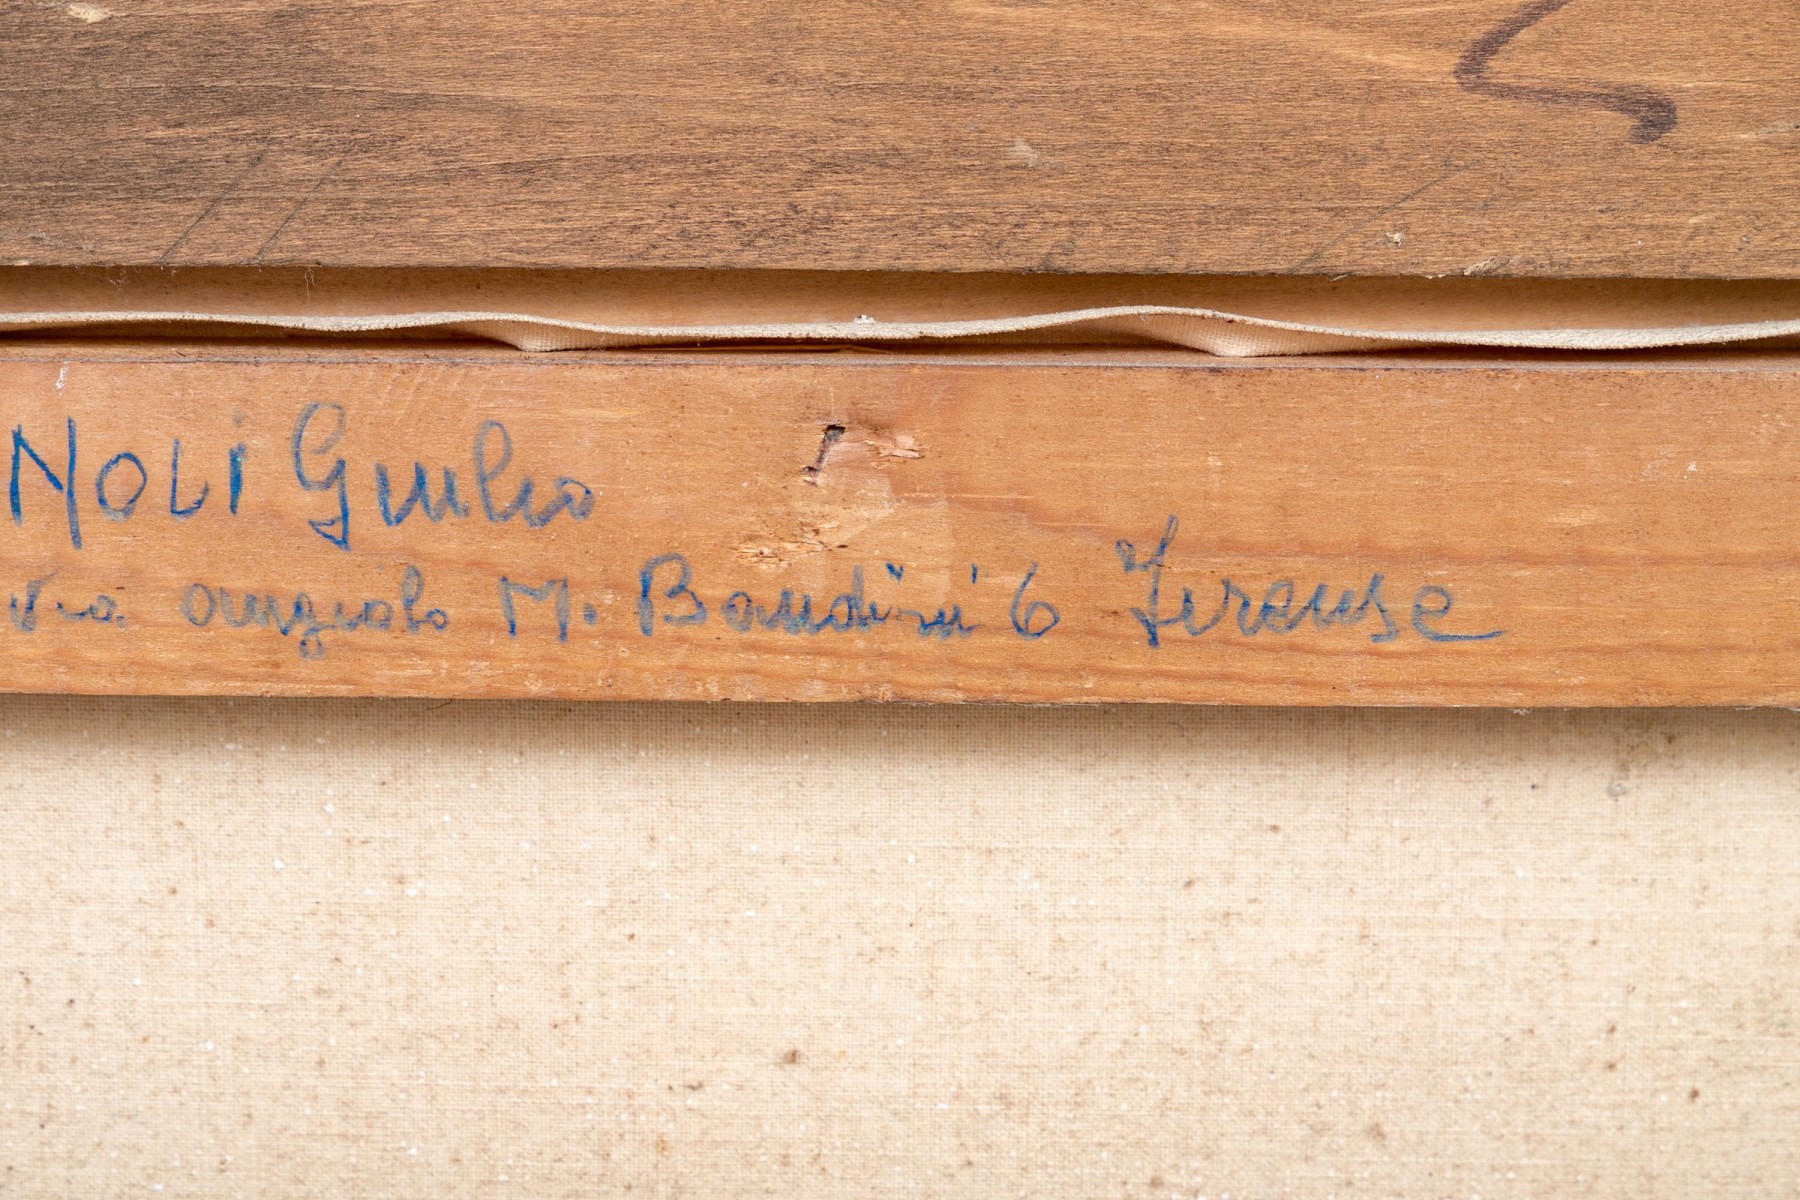 NOLi Giulio
Via angiolo M. Bandini 6 Firense